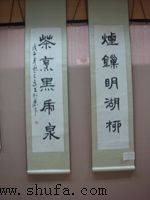 煙鎖明湖柳
茶烹黑虎泉
www.shufa.com